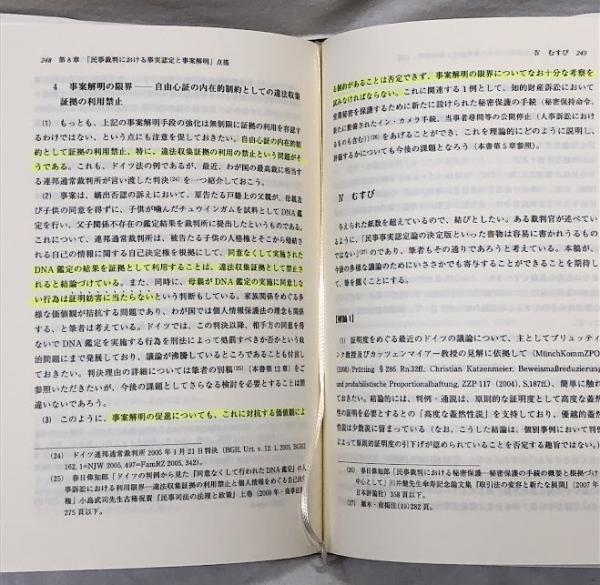 248 第8章 「民事裁判における事実認定と事案解明」点描
4 事案解明の限界——自由心証の内在的制約としての違法収集
証拠の利用禁止
(1) もっとも、上記の事案解明手段の強化は無制限に証拠の利用を容認す
るわけではない、という点にも注意を促しておきたい。自由心証の内在的制
約として証拠の利用禁止、特に、違法収集証拠の利用の禁止という問題がそ
うである。これも、ドイツ法の例であるが、最近、わが国の最高裁に相当す
る連邦通常裁判所が言い渡した判決(24)を一つ紹介しておこう。
(2) 事案は、嫡出否認の訴えにおいて、原告たる戸籍上の父親が、母親及
び子供の同意を得ずに、子供が噛んだチュウインガムを試料としてDNA鑑
定を行い、父子関係不存在の鑑定結果を裁判所に提出したというものである。
これについて、連邦通常裁判所は、被告たる子供の人格権とそこから帰結さ
れる自己の情報に関する自己決定権を根拠にして、同意なくして実施された
DNA鑑定の結果を証拠として利用することは、違法収集証拠として禁止さ
れると結論づけている。また、同時に、母親がDNA鑑定の実施に同意しな
い行為は証明妨害に当たらないという判断もしている。家族関係をめぐる多
様な価値観が拮抗する問題であり、わが国では個人情報保護法の理念も関係
する、と筆者は考えている。ドイツでは、この判決以降、相手方の同意を得
ないでDNA鑑定を実施する行為を刑法によって処罰すべきか否かという政
治問題にまで発展しており、議論が沸騰しているところであることも付言して
おきたい。判決理由の詳細については筆者の別稿(25)(本書第12章)をご
参照いただきたいが、今後の課題としてさらなる検討を必要とすることは間
違いないであろう。
(3) このように、事案解明の促進についても、これに対抗する価値観によ
(24) ドイツ連邦通常裁判所2005年1月21日判決(BGH, Urt. v. 12. 1. 2005, BGH
162, 1=NJW 2005, 497=FamRZ 2005, 342)。
(25) 春日偉知郎「ドイツの判例から見た『同意なくして行われたDNA鑑定』の人
事訴訟における利用限界—違法収集証拠の利用禁止と個人情報をめぐる自己決
権」小島武司先生古稀祝賀『民事司法の法理と政策』上巻(2008年・商事法
275頁以下。
Ⅳ むすび 249
る制約があることは否定できず、事案解明の限界についてなお十分な考察を
試みなければならない。これに関連する1例として、知的財産訴訟において
営業秘密を保護するために新たに設けられた秘密保護の手続(秘密保持命令、
新たに整備されたイン・カメラ手続、当事者尋問等の公開停止(人事訴訟におけ
るものも含む))をあげることができ、これを理論的にどのように説明し、
評価するかについても今後の課題となろう(本書第5章参照)。
Ⅳ むすび
与えられた紙数を超えているので、結びとしたい。ある裁判官が述べてい
るように、「民事事実認定論の決定版といった書物は容易に書かれうるもので
はない」(27)のであり、筆者もその通りであろうと考えている。本稿が、
今後の多様な議論のためにいささかでも寄与することができることを期待し
て、筆を擱くことにする。
(1) 証明度をめぐる最近のドイツの議論について、主としてプリュッティ
ング教授及びカッツェンマイアー教授の見解に依拠して(MünchKommZPO
(2008)/Prütting § 286 Rn.32ff, Christian Katzenmeier, Beweismaßreduzierung
und probabilistische Proportionalhaftung, ZZP 117 (2004), S.187ff)、簡単に触れ
ておきたい。結論的には、判例・通説は、原則的な証明度として高度な蓋然
性の証明を必要とするとの「高度な蓋然性説」を支持しており、優越的蓋然
性説は少数説に留まっている(なお、こうした結論は、個別事案において判例
によって原則的証明度の引下げが認められていることを否定する趣旨ではない。)
(26) 春日偉知郎「民事裁判における秘密保護—秘密保護の手続の概要と根拠づけ
中心として」川井健先生傘寿記念論文集『取引法の変容と新たな展開』(2007年
日本評論社)358頁以下。
(27) 瀧木・前掲注(19)282頁。